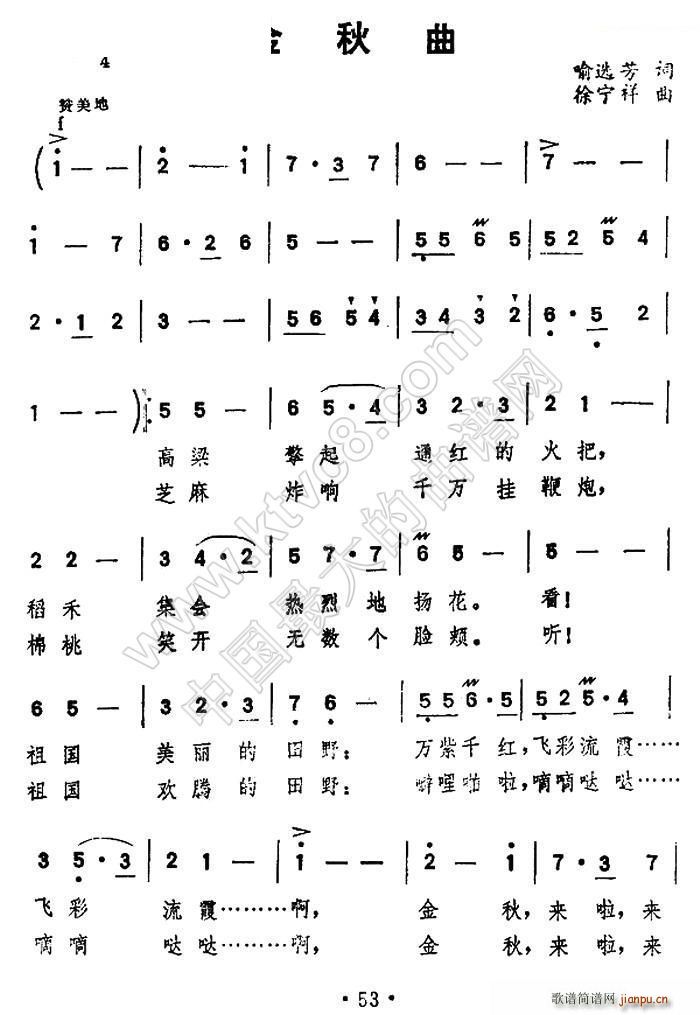 金秋曲
4
喻选芳 词
赞美地
徐宁祥 曲
f
( 1 — — | 2 — 1 | 7 · 3 7 | 6 — — | 7 — — |
1 — 7 | 6 · 2 6 | 5 — — | 5 5 6 5 | 5 2 5 4 |
2 · 1 2 | 3 — — | 5 6 5 4 | 3 4 3 2 | 6 · 5 2 |
1 — — ) |: 5 5 — | 6 5 · 4 | 3 2 · 3 | 2 1 — |
高粱 擎起 通红的 火把,
芝麻 炸响 千万挂 鞭炮,
2 2 — | 3 4 · 2 | 5 7 · 7 | 6 5 — | 5 — — |
稻禾 集会 热烈地 扬花。 看!
棉桃 笑开 无数个 脸颊。 听!
6 5 — | 3 2 · 3 | 7 6 — | 5 5 6 · 5 | 5 2 5 · 4 |
祖国 美丽的 田野: 万紫千红,飞彩流霞……
祖国 欢腾的 田野: 噼哩啪啦,嘀嘀哒哒……
3 5 · 3 | 2 1 — | 1 — — | 2 — 1 | 7 · 3 7 |
飞彩 流霞………啊, 金 秋,来 啦,来
嘀嘀 哒哒………啊, 金 秋,来 啦,来
· 53 ·
www.ktvc8.com
中国最大的曲谱网
歌谱简谱网
jianpu.cn